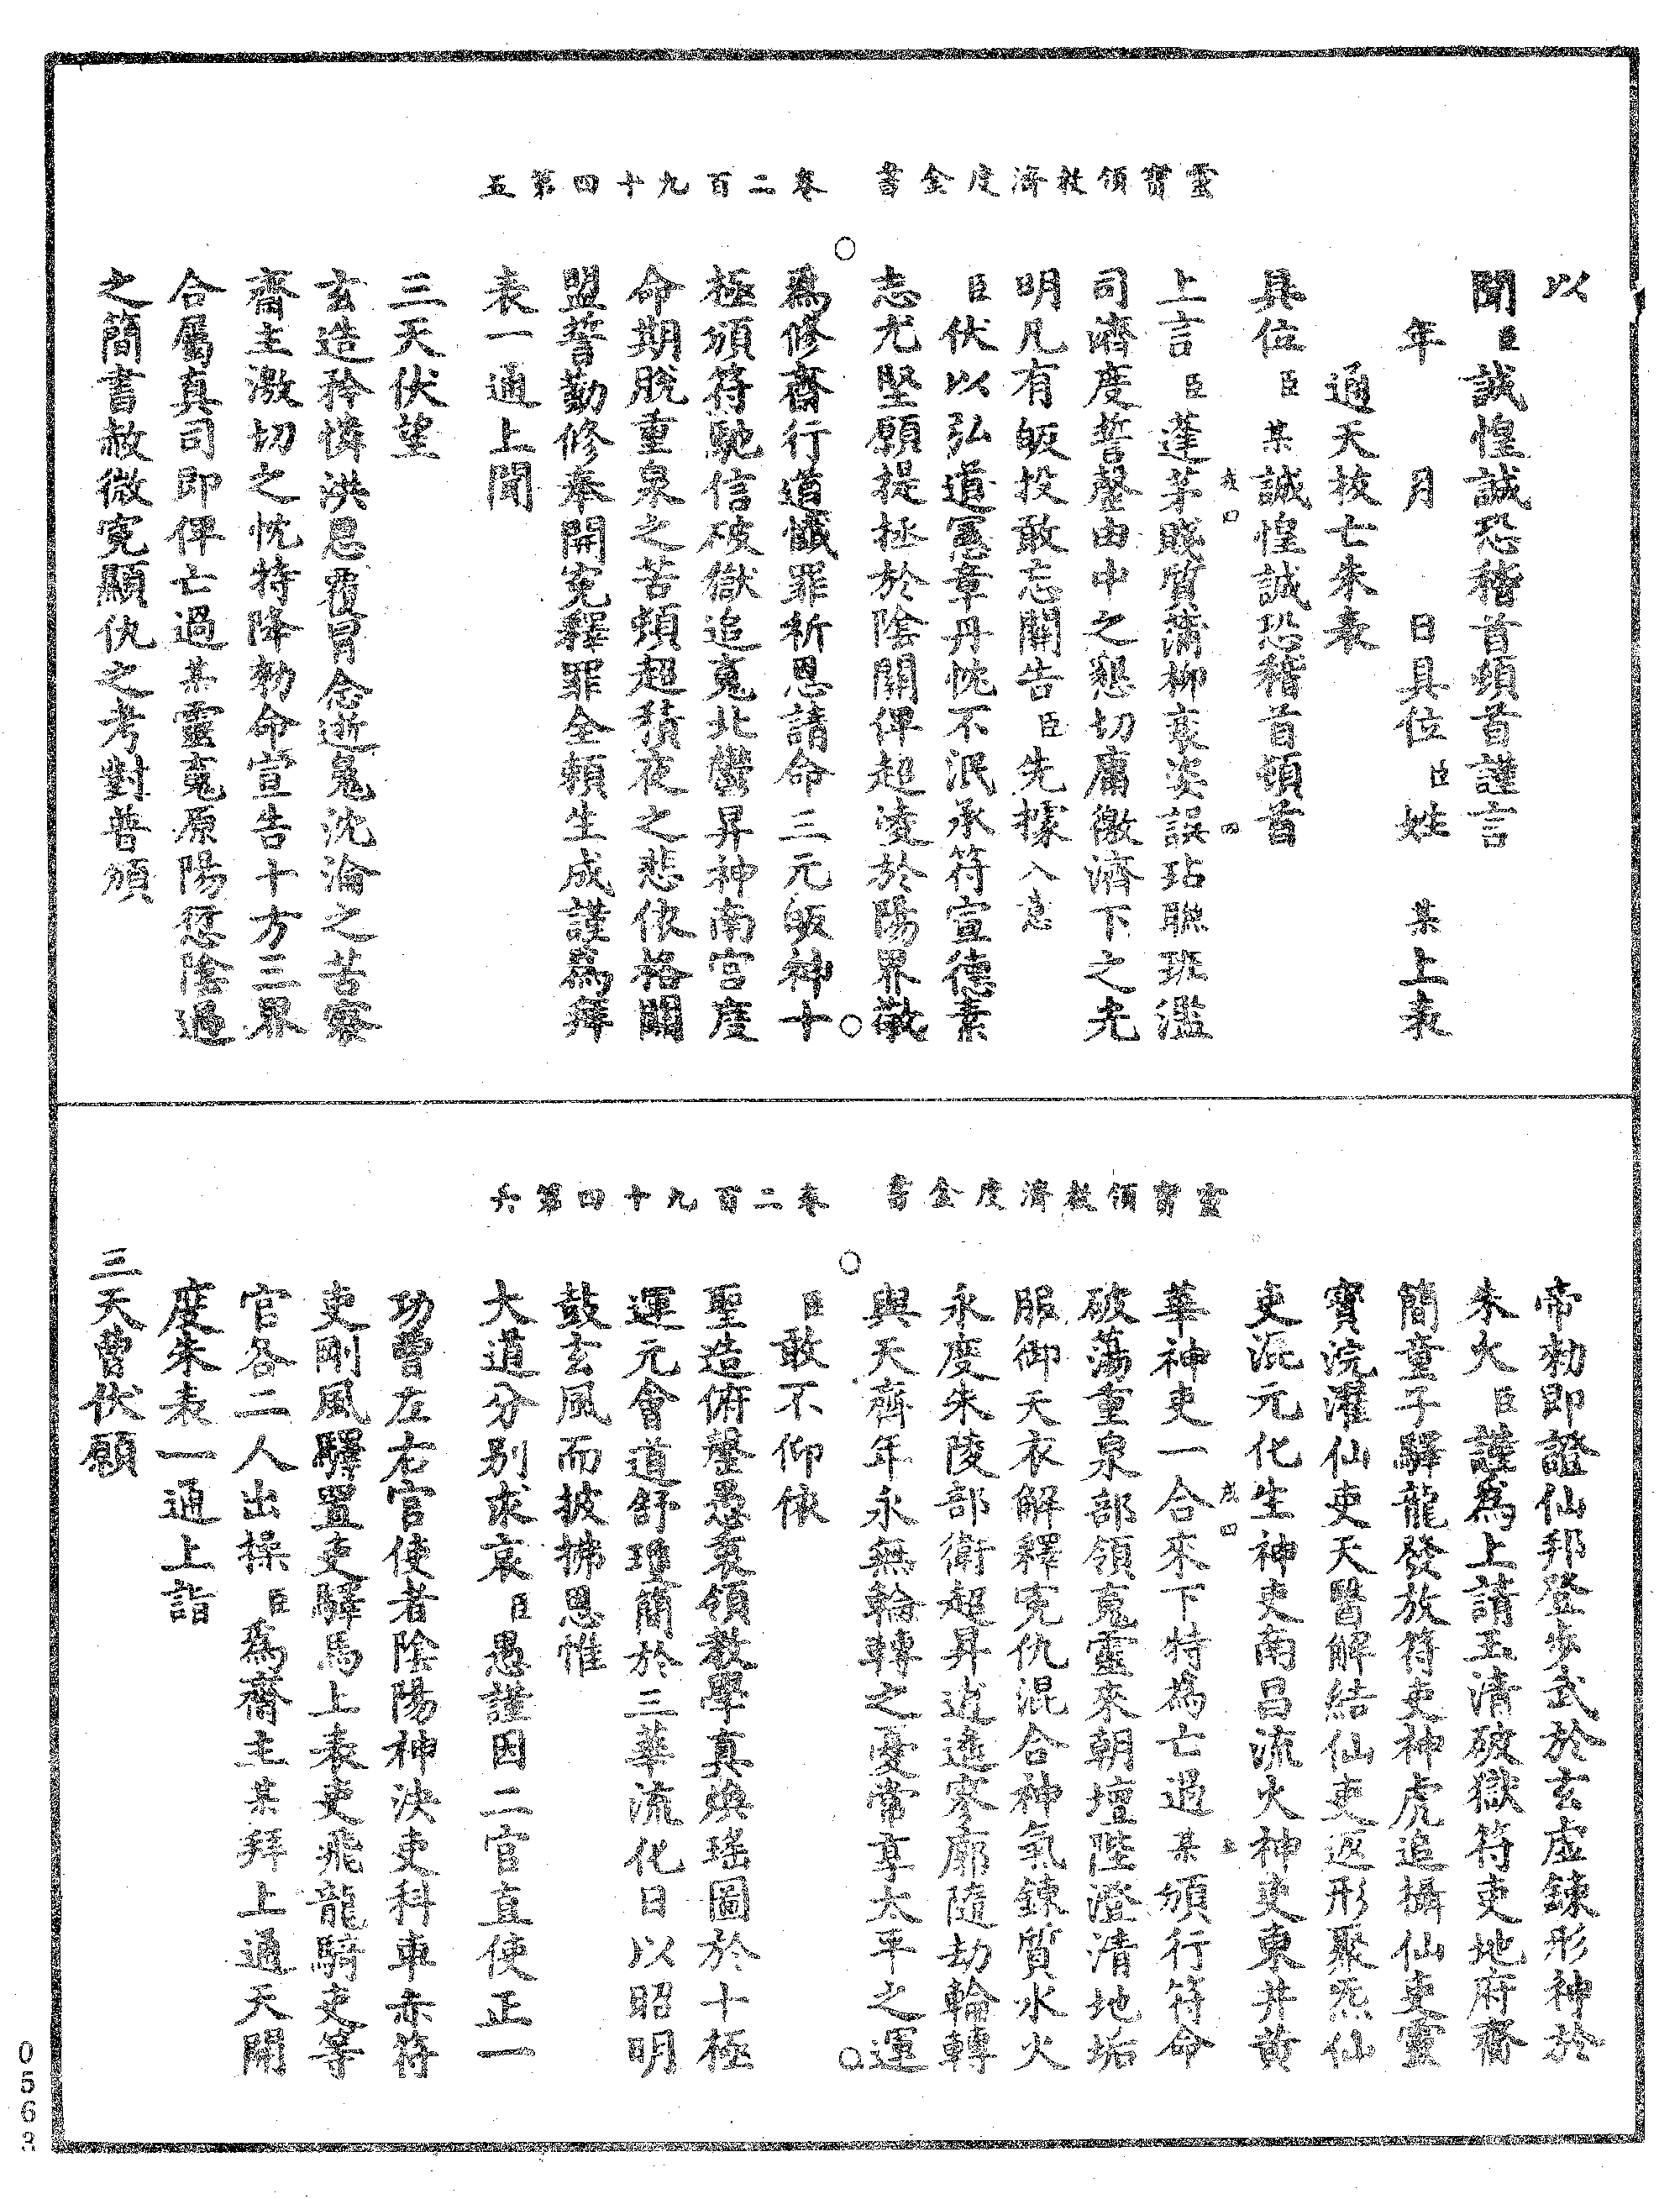 靈寶領教濟度金書　卷二百九十四第五
以
聞臣誠惶誠恐稽首頓首謹言
年　月　日具位臣姓　某上表
通天拔亡朱表
具位臣某誠惶誠恐稽首頓首
上言臣蓬茅賤質蒲柳衰姿誤玷聯班濫
司濟度誓罄由中之懇切庸徼濟下之光
明凡有皈投敢忘開告臣先據入意
臣伏以弘道憲章丹忱不泯承符宣德素
志尤堅願提拯於陰關俾超凌於陽界敬
為修齋行道懺罪祈恩請命三元皈神十
極頒符馳信破獄追䰟北酆昇神南宮度
命期脫重泉之苦頻超積夜之悲依格關
盟誓勤修奉開宥釋罪全賴生成謹為拜
表一通上聞
三天伏望
玄造矜憐洪恩覆冒念逝䰟沈淪之苦察
齋主激切之忱特降勑命宣告十方三界
合屬真司即俾亡過某靈䰟原陽愆陰過
之簡書赦微冤顯仇之考對普頒
靈寶領教濟度金書　卷二百九十四第六
帝勑即證仙邦登步武於玄虛鍊形神於
朱火臣謹為上請玉清破獄符吏地府齋
簡童子驛龍發放符吏神虎追攝仙吏靈
寶浣濯仙吏天醫解結仙吏返形聚炁仙
吏混元化生神吏南昌流火神吏東井黃
華神吏一合來下特為亡過某頒行符命
破蕩重泉部領䰟靈來朝壇陛澄清地垢
服御天衣解釋冤仇混合神氣鍊質水火
永度朱陵部衛超昇逍遙寥廓隨劫輪轉
與天齊年永無輪轉之憂常享太平之運
臣敢不仰依
聖造俯罄愚衷領教學真煥瑤圖於十極
運元會道舒瓊簡於三華流化日以昭明
鼓玄風而披拂恩惟
大道分別求哀臣愚謹因二官直使正一
功曹左右官使者陰陽神決吏科車赤符
吏剛風驛置吏驛馬上表吏飛龍騎吏等
官各二人出操臣為齋主某拜上通天開
度朱表一通上詣
三天曹伏願